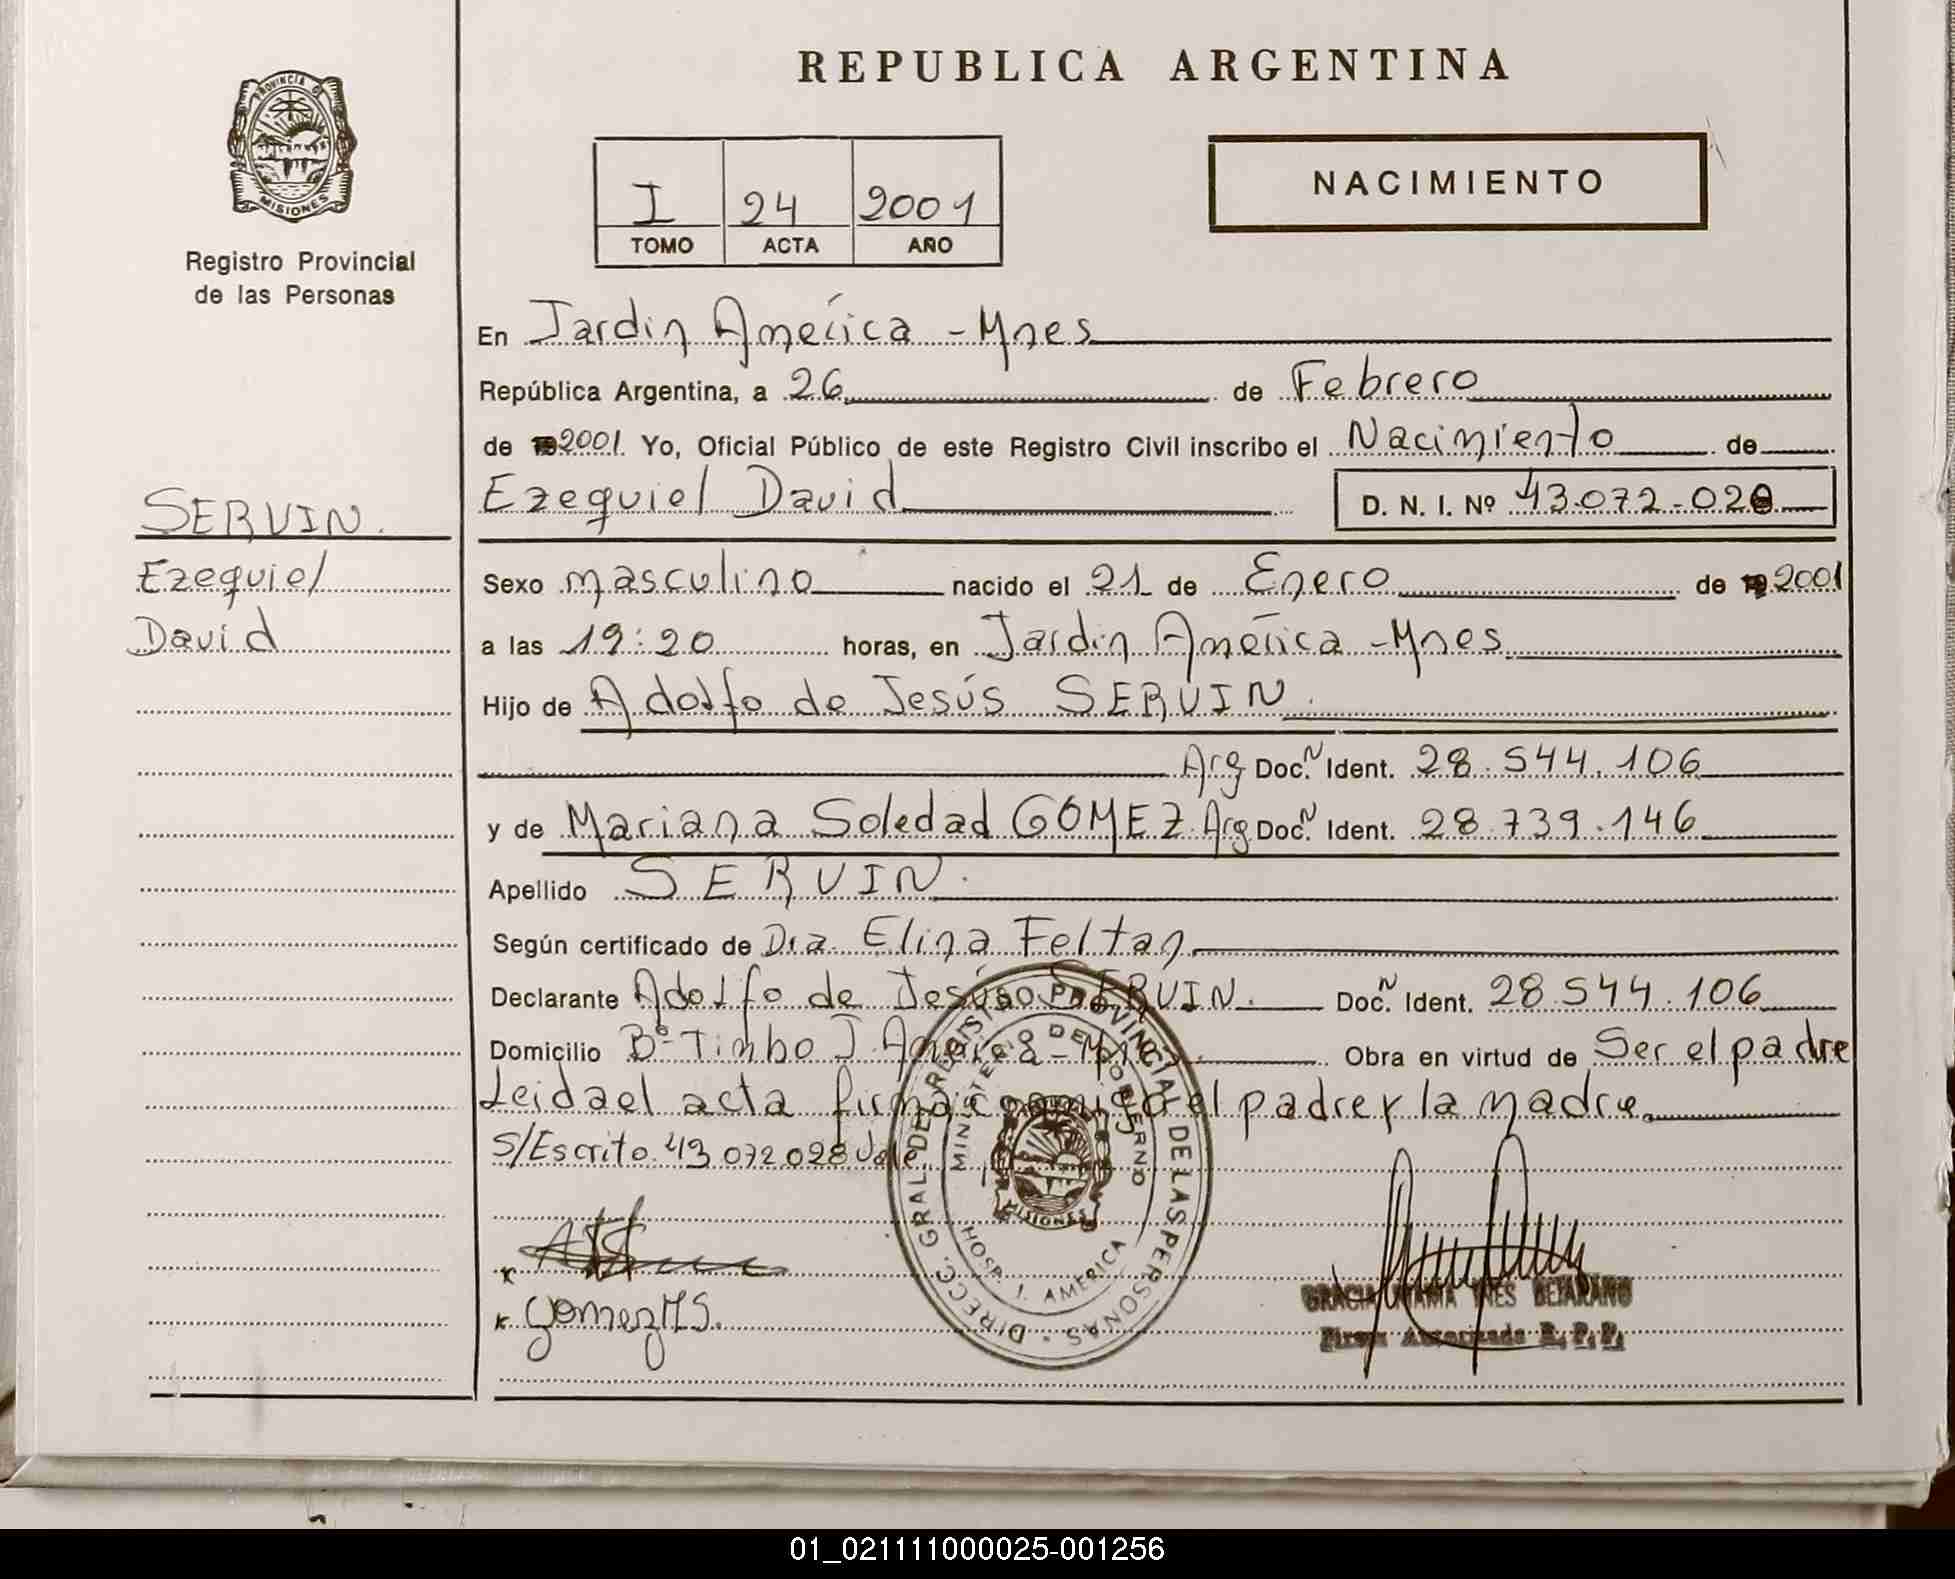 REPUBLICA ARGENTINA
PROVINCIA DE
MISIONES
Registro Provincial
de las Personas
I 24 2001
TOMO ACTA AÑO
NACIMIENTO
En Jardin América - Mnes
República Argentina, a 26 de Febrero
de 2001. Yo, Oficial Público de este Registro Civil inscribo el Nacimiento de
Ezequiel David D. N. I. Nº 43.072.028
SERVIN.
Ezequiel
David
Sexo masculino nacido el 21 de Enero de 2001
a las 19:20 horas, en Jardin América - Mnes
Hijo de Adolfo de Jesús SERVIN.
Arg Doc. N Ident. 28.544.106
y de Mariana Soledad GOMEZ. Arg Doc. N Ident. 28.739.146
Apellido SERVIN.
Según certificado de Dra. Elina Feltan
Declarante Adolfo de Jesús SERVIN. Doc. N Ident. 28.544.106
Domicilio Bº Timbo J. América - Mnes. Obra en virtud de Ser el padre
Leida el acta firma conmigo el padre y la madre.
S/Escrito 43.072.028 Vale.
DIRECC. GRAL. DE REGISTRO PROVINCIAL DE LAS PERSONAS
MINISTERIO DE GOBIERNO
MISIONES
HOSP. J. AMERICA
x
x Gomez M S.
GRACIA MARIA INES BEJARANO
Firma Autorizada R. P. P.
01_021111000025-001256